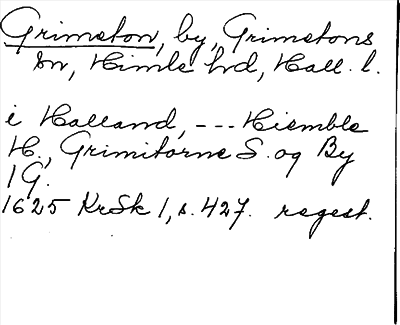 Grimeton, by, Grimetons
sn, Himle hd, Hall. l.
i Halland, --- Hiemble
H., Grimitorne S. og By
1 G.
1625 KrSk 1, s. 427. regest.